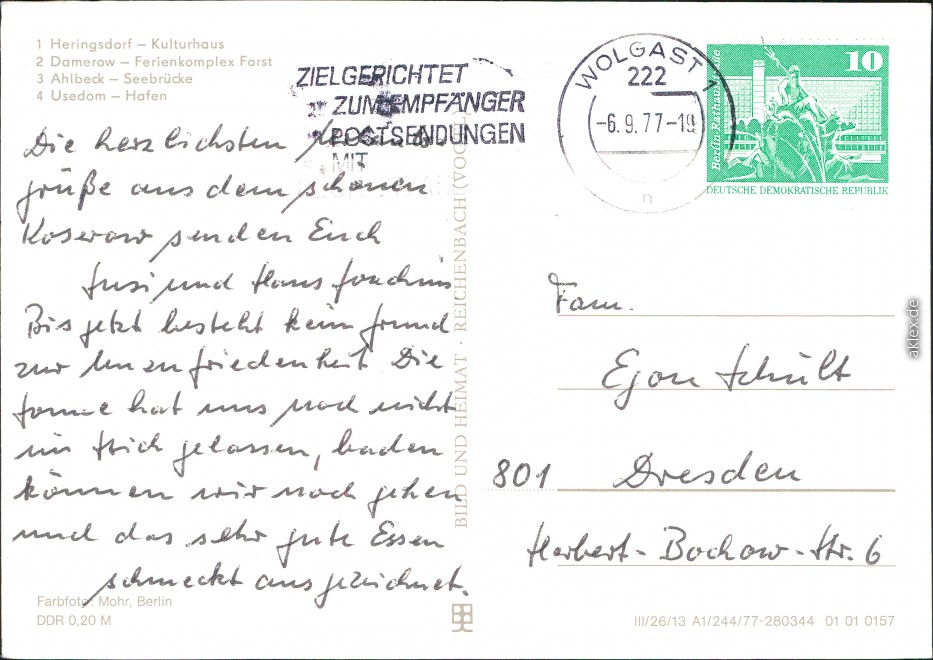 1 Heringsdorf – Kulturhaus
2 Damerow – Ferienkomplex Forst
3 Ahlbeck – Seebrücke
4 Usedom – Hafen
ZIELGERICHTET
ZUM EMPFÄNGER
POSTSENDUNGEN
MIT
WOLGAST 1
222
-6.9.77-19
n
10
Berlin, Rathausstraße
DEUTSCHE DEMOKRATISCHE REPUBLIK
Die herzlichsten
grüße aus dem schönen
Koserow senden Euch
Susi und Hans Joachim
Bis jetzt besteht kein Grund
zur Unzufriedenheit Die
Sonne hat uns noch nicht
im Stich gelassen, baden
können wir noch gehen
und das sehr gute Essen
schmeckt ausgezeichnet.
Farbfoto: Mohr, Berlin
DDR 0,20 M
BILD UND HEIMAT · REICHENBACH (VOGTL
Fam.
Egon Schült
801 Dresden
Herbert-Bochow-Str. 6
III/26/13 A1/244/77-280344 01 01 0157
aklex.de